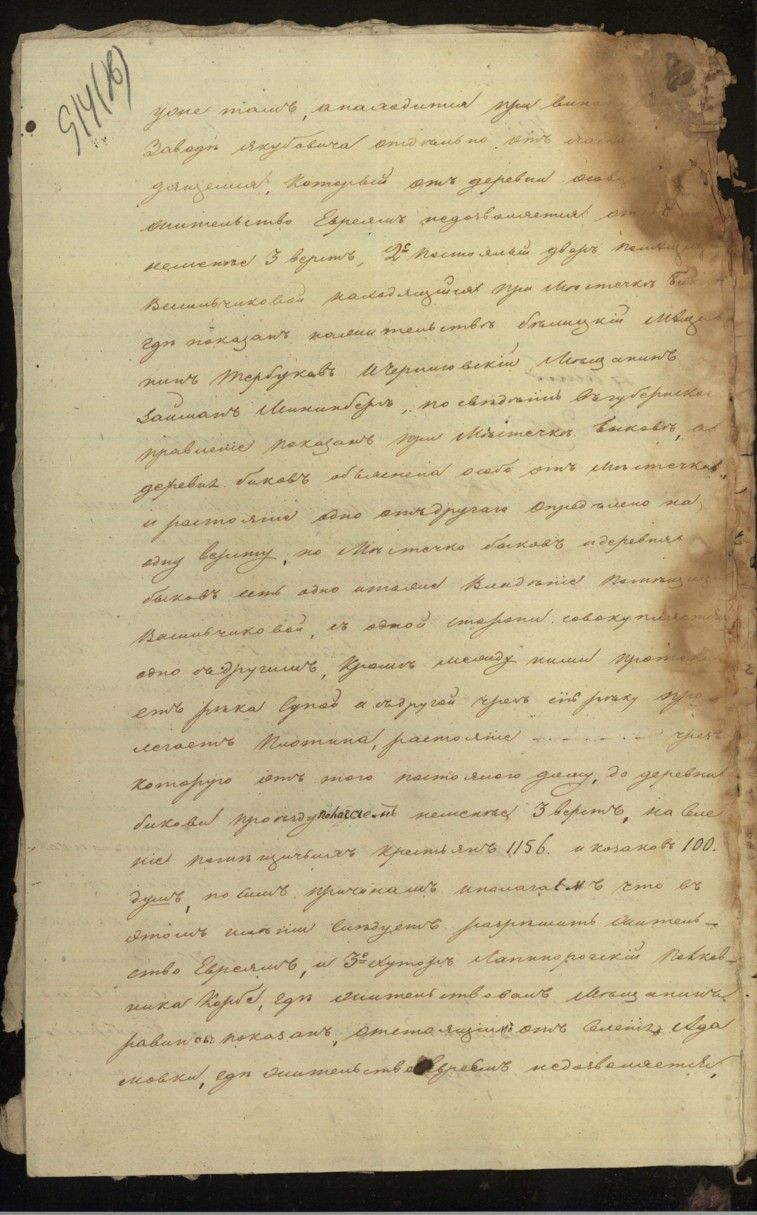 514(16)
уоне тамъ, анаходится при вино
Заводѣ Якубовича отдѣльно отъ
дящемся, Который отъ деревни
жительство Евреямъ недозволяется
неменѣе 3 верстъ, 2е Постоялый дворъ помѣщи
Васильчиковой находящійся при Мѣстечкѣ Бык
гдѣ показанъ нажительствѣ бѣлицкій Мѣща
нинъ Жербуковъ ИЧерниговскій Мѣщанинъ
Займанъ, по свѣдѣнію Въгубернско
правленіе показанъ при Мѣстечкѣ Быковѣ, а
деревня быковъ объяснена особо отъ Мѣстечка,
и растояніе одно отъдругаго опредѣлено на
одну версту, но Мѣстечко быковъ идеревня
быковъ есть одно итоже Владѣніе Помѣщиц
Васильчиковой, съ одной стороны совокупляется
одно съдругимъ, Кромѣ между ними протека
етъ рѣка Супой а съдругой чрезъ сію рѣку про
легаетъ Плотина, растояніе - . - . - . - чрезъ
которую отъ того постоялого дому, до деревни
быкова проѣзду полагаемъ неменѣе 3 верстъ, на Селе
ніе помѣщичьихъ Крестьянъ 1156. и козаковъ 100.
душъ, по симъ причинамъ иполагаемъ что въ
этомъ имѣніи Слѣдуетъ разрѣшить жительст-
ство Евреямъ, и 3е Хуторъ Полков-
ника Корбе, гдѣ жительствовалъ Мѣщанинъ
показанъ, отстоящимъ отъ Селенія Ада
мовки, гдѣ жительство Евреямъ недозволяется,